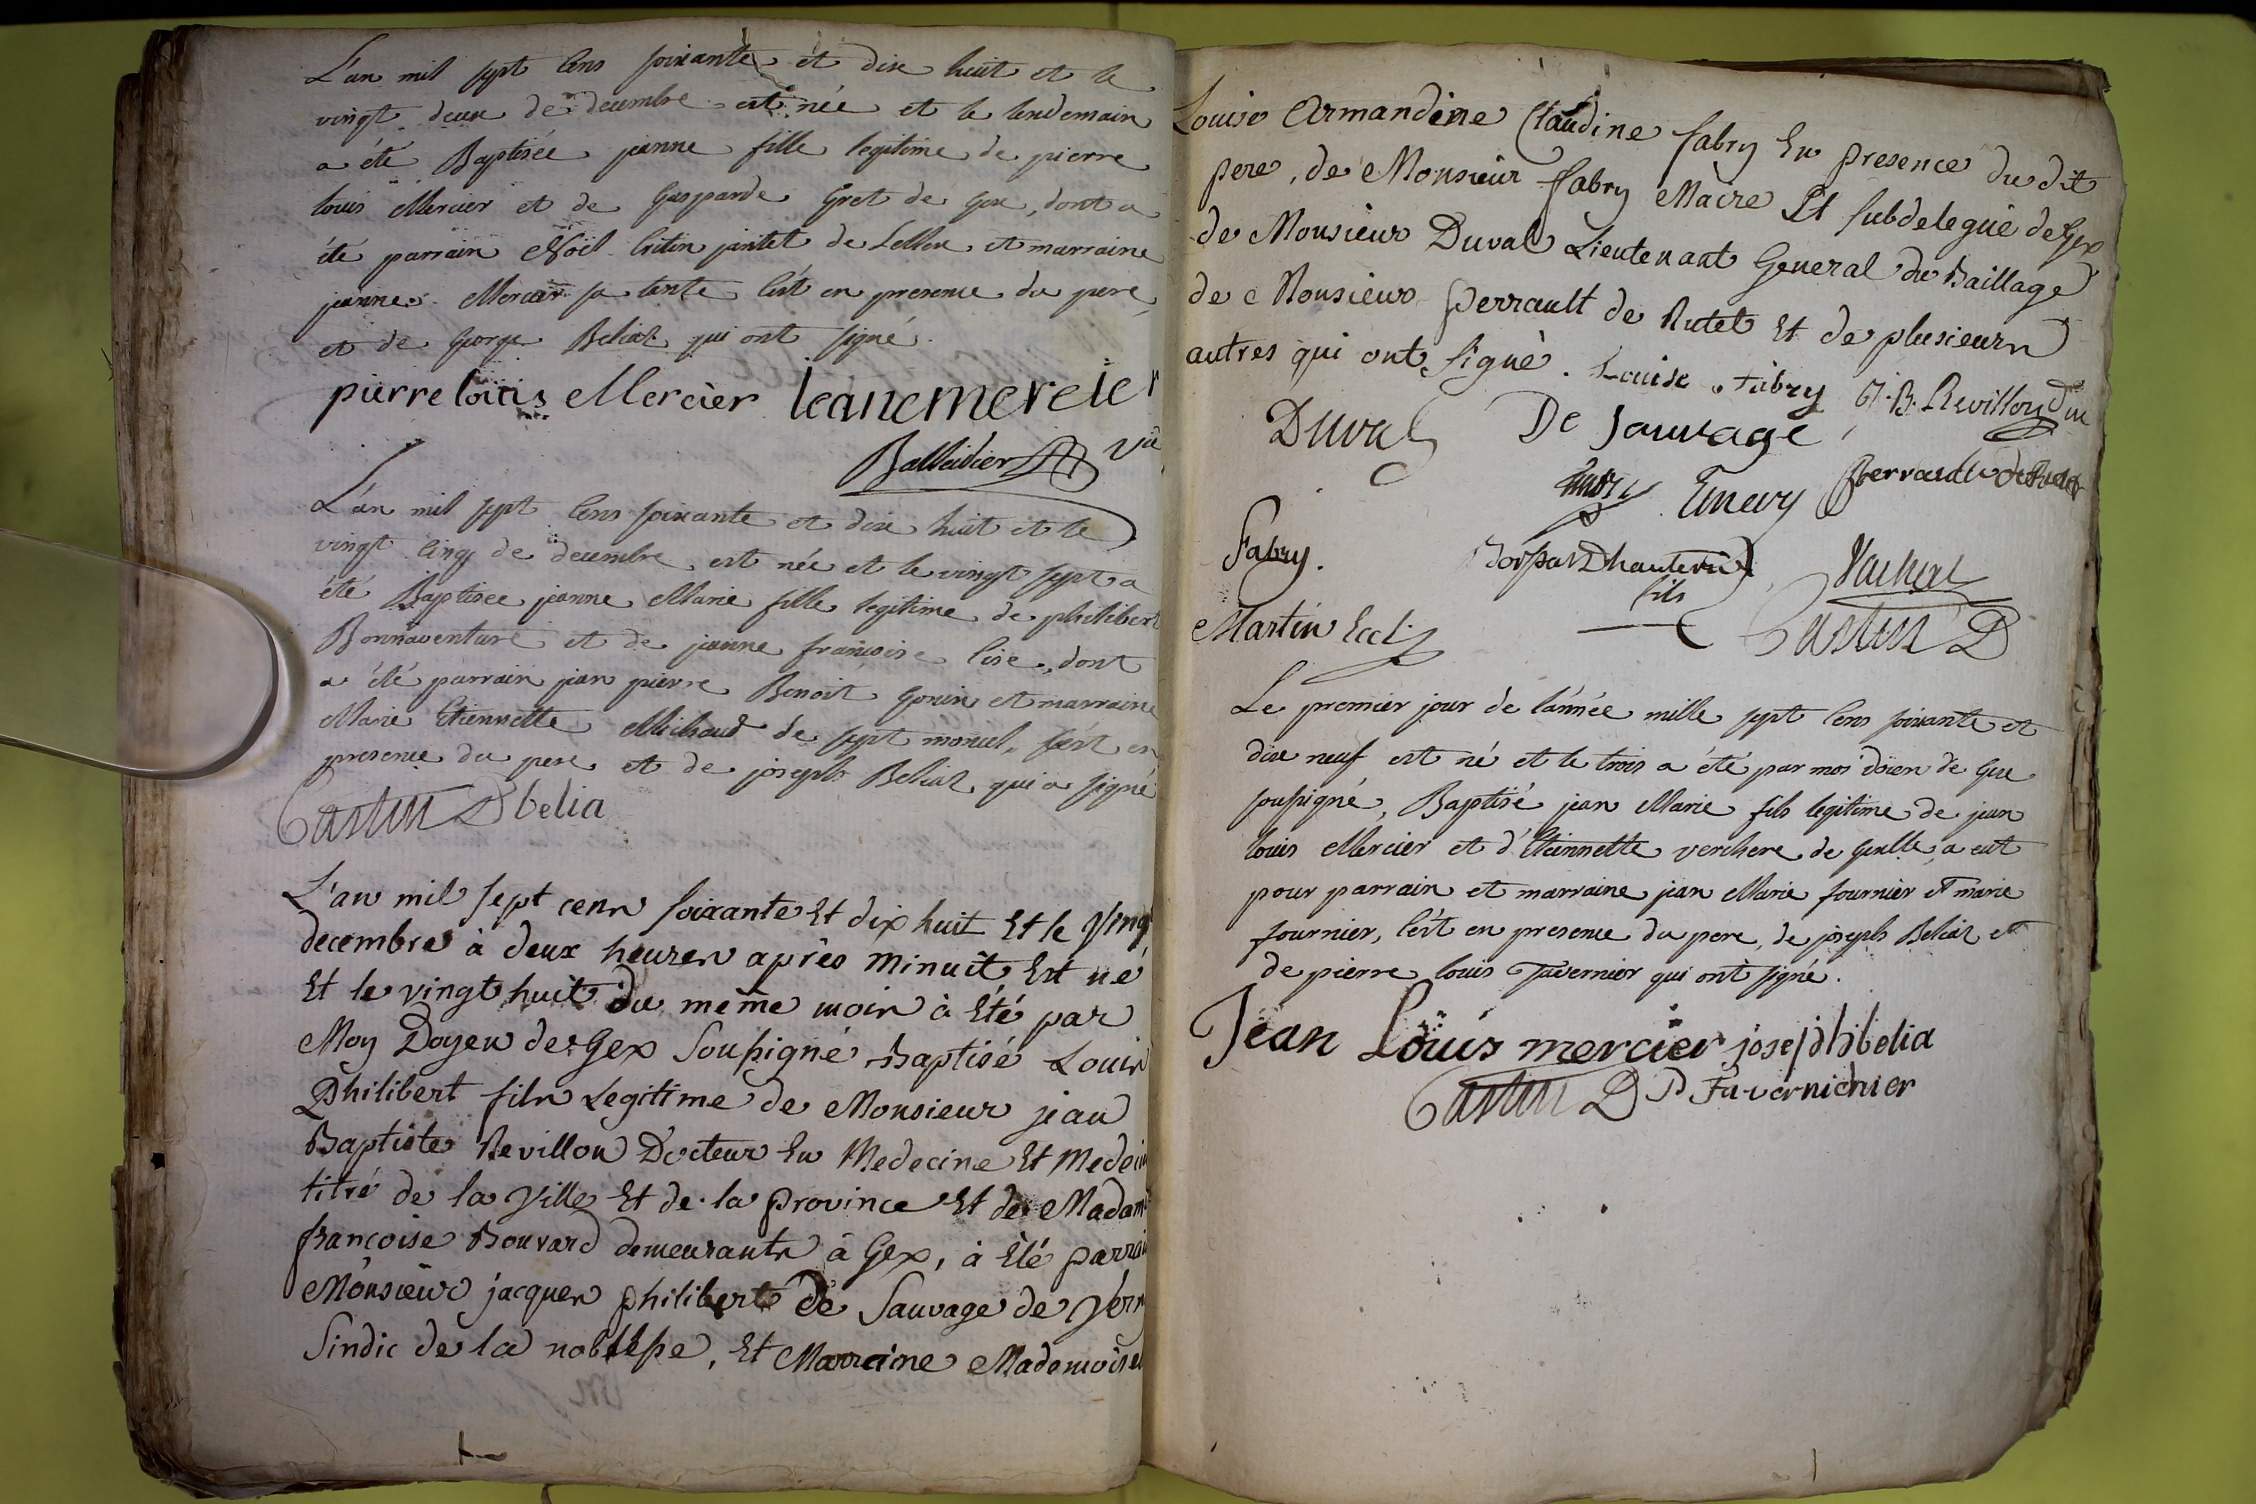 L'an mil sept cens soixante et dix huit et le
vingt deux de decembre est née et le lendemain
a été Baptisée jeanne fille legitime de pierre
louis Mercier et de Gasparde Gret de Gex, dont a
été parrain Noël jantet de Lellex et marraine
jeanne Mercier sa tante C'est en presence du pere
et de George Beliaz qui ont signé.
pierre louis Mercier
Balleidier
L'an mil sept cens soixante et dix huit et le
vingt cinq de decembre est née et le vingt sept a
été Baptisée jeanne Marie fille legitime de philibert
Bonnaventure et de jeanne françoise lise, dont
a été parrain jean pierre Benoit gonin et marraine
Marie Etiennette Michaud de sept moncel, c'est en
presence du pere et de joseph Beliaz qui a signé
Castin D belia
L'an mil sept cens soixante Et dix huit Et le Ving
decembre à deux heures après minuit Est né
Et le vingt huit du même mois à Eté par
Moy Doyen de Gex Soussigné Baptisé Louis
Philibert fils Legitime de Monsieur jean
Baptiste Revillon Docteur En Medecine Et Medecin
titré de la Ville Et de la province Et de Madame
françoise Bouvard demeurants à Gex, à Eté parrain
Monsieur jacques philibert de Sauvage de Vern
Sindic de la noblesse, Et Marraine Mademoisel
Louise Armandine Claudine fabry En presence du dit
pere, de Monsieur fabry Maire Et subdelegué de Gex
de Monsieur Duval Lieutenant General du Baillage
de Monsieur perrault de Rutet Et de plusieurs
autres qui ont signé. Louise fabry J. B. Revillon Dm
Duval De Sauvage
Emery perrault de Rutet
Fabry. fils Vachat
Martin Eccl. Castin D
Le premier jour de l'année mille sept cens soixante et
dix neuf est né et le trois a été par moi doïen de Gex
soussigné, Baptisé jean Marie fils legitime de jean
louis Mercier et d'Etiennette verchere de Gex elle a eut
pour parrain et marraine jean Marie fournier et marie
fournier, c'est en presence du pere, de joseph Beliaz et
de pierre louis Tavernier qui ont signé.
Jean Louis mercier joseph belia
Castin D P Tavernier